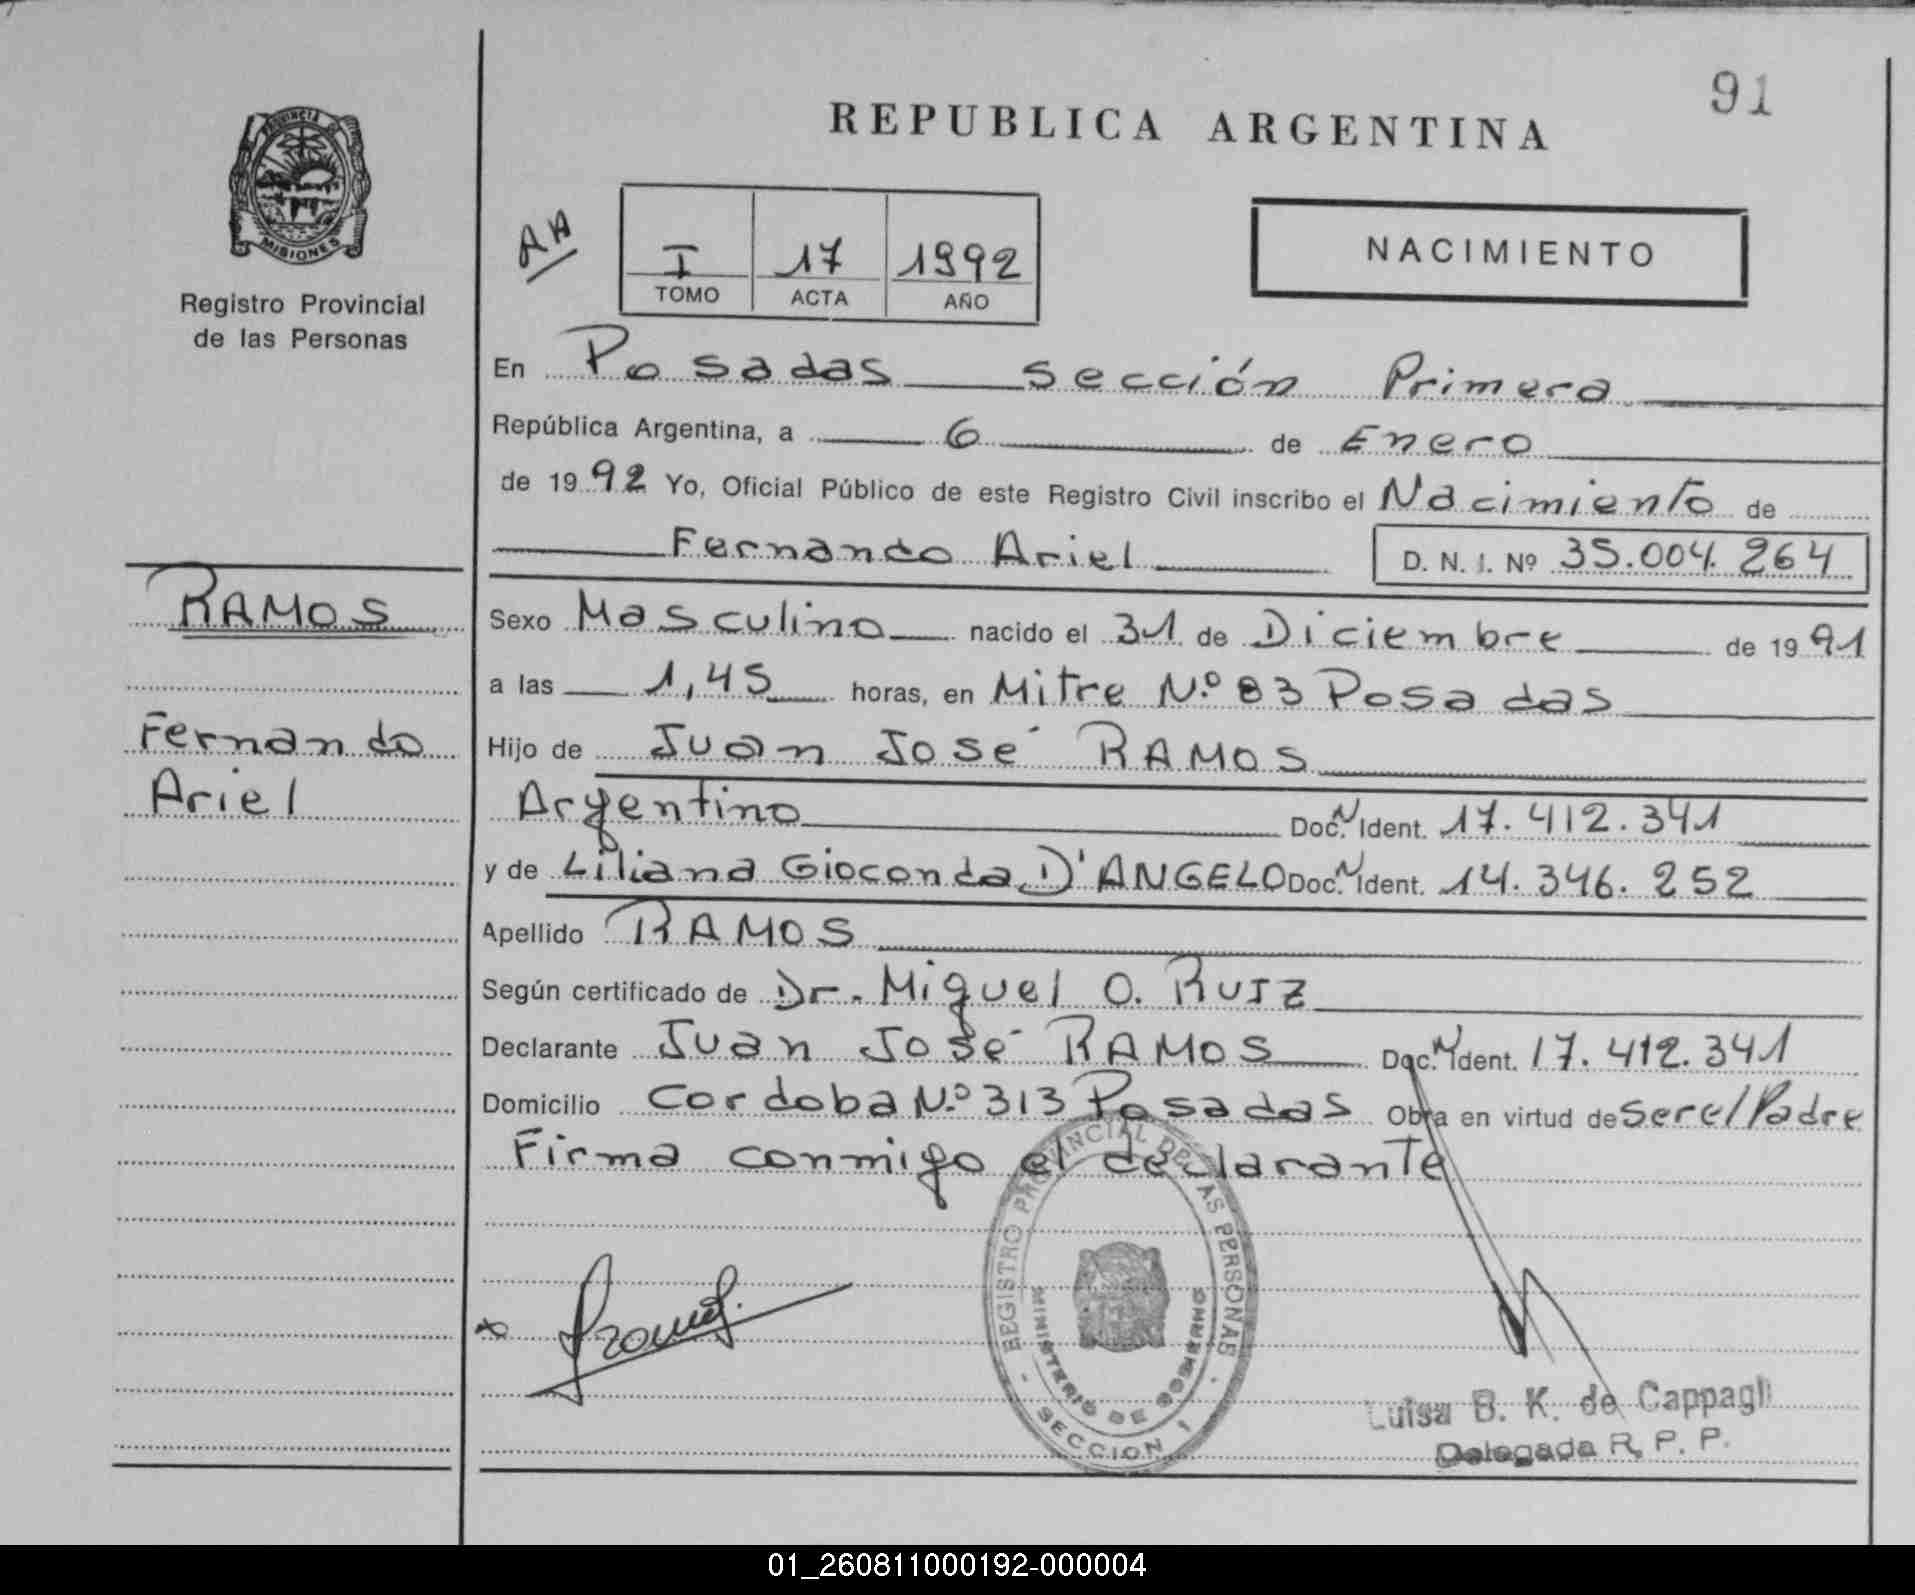 91
REPUBLICA ARGENTINA
PROVINCIA DE
MISIONES
Registro Provincial
de las Personas
AA
I 17 1992
TOMO ACTA AÑO
NACIMIENTO
En Posadas sección Primera
República Argentina, a 6 de Enero
de 1992 Yo, Oficial Público de este Registro Civil inscribo el Nacimiento de
Fernando Ariel D. N. I. Nº 35.004.264
RAMOS
Fernando
Ariel
Sexo Masculino nacido el 31 de Diciembre de 1991
a las 1,45 horas, en Mitre N.º 83 Posadas
Hijo de Juan José RAMOS
Argentino Doc. N Ident. 17.412.341
y de Liliana Gioconda D'ANGELO Doc. N Ident. 14.346.252
Apellido RAMOS
Según certificado de Dr. Miguel O. RUIZ
Declarante Juan José RAMOS Doc. N Ident. 17.412.341
Domicilio Cordoba N.º 313 Posadas Obra en virtud de ser el Padre
Firma conmigo el declarante
REGISTRO PROVINCIAL DE LAS PERSONAS
MINISTERIO DE GOBIERNO
SECCION I
Luisa B. K. de Cappagli
Delegada R. P. P.
01_260811000192-000004